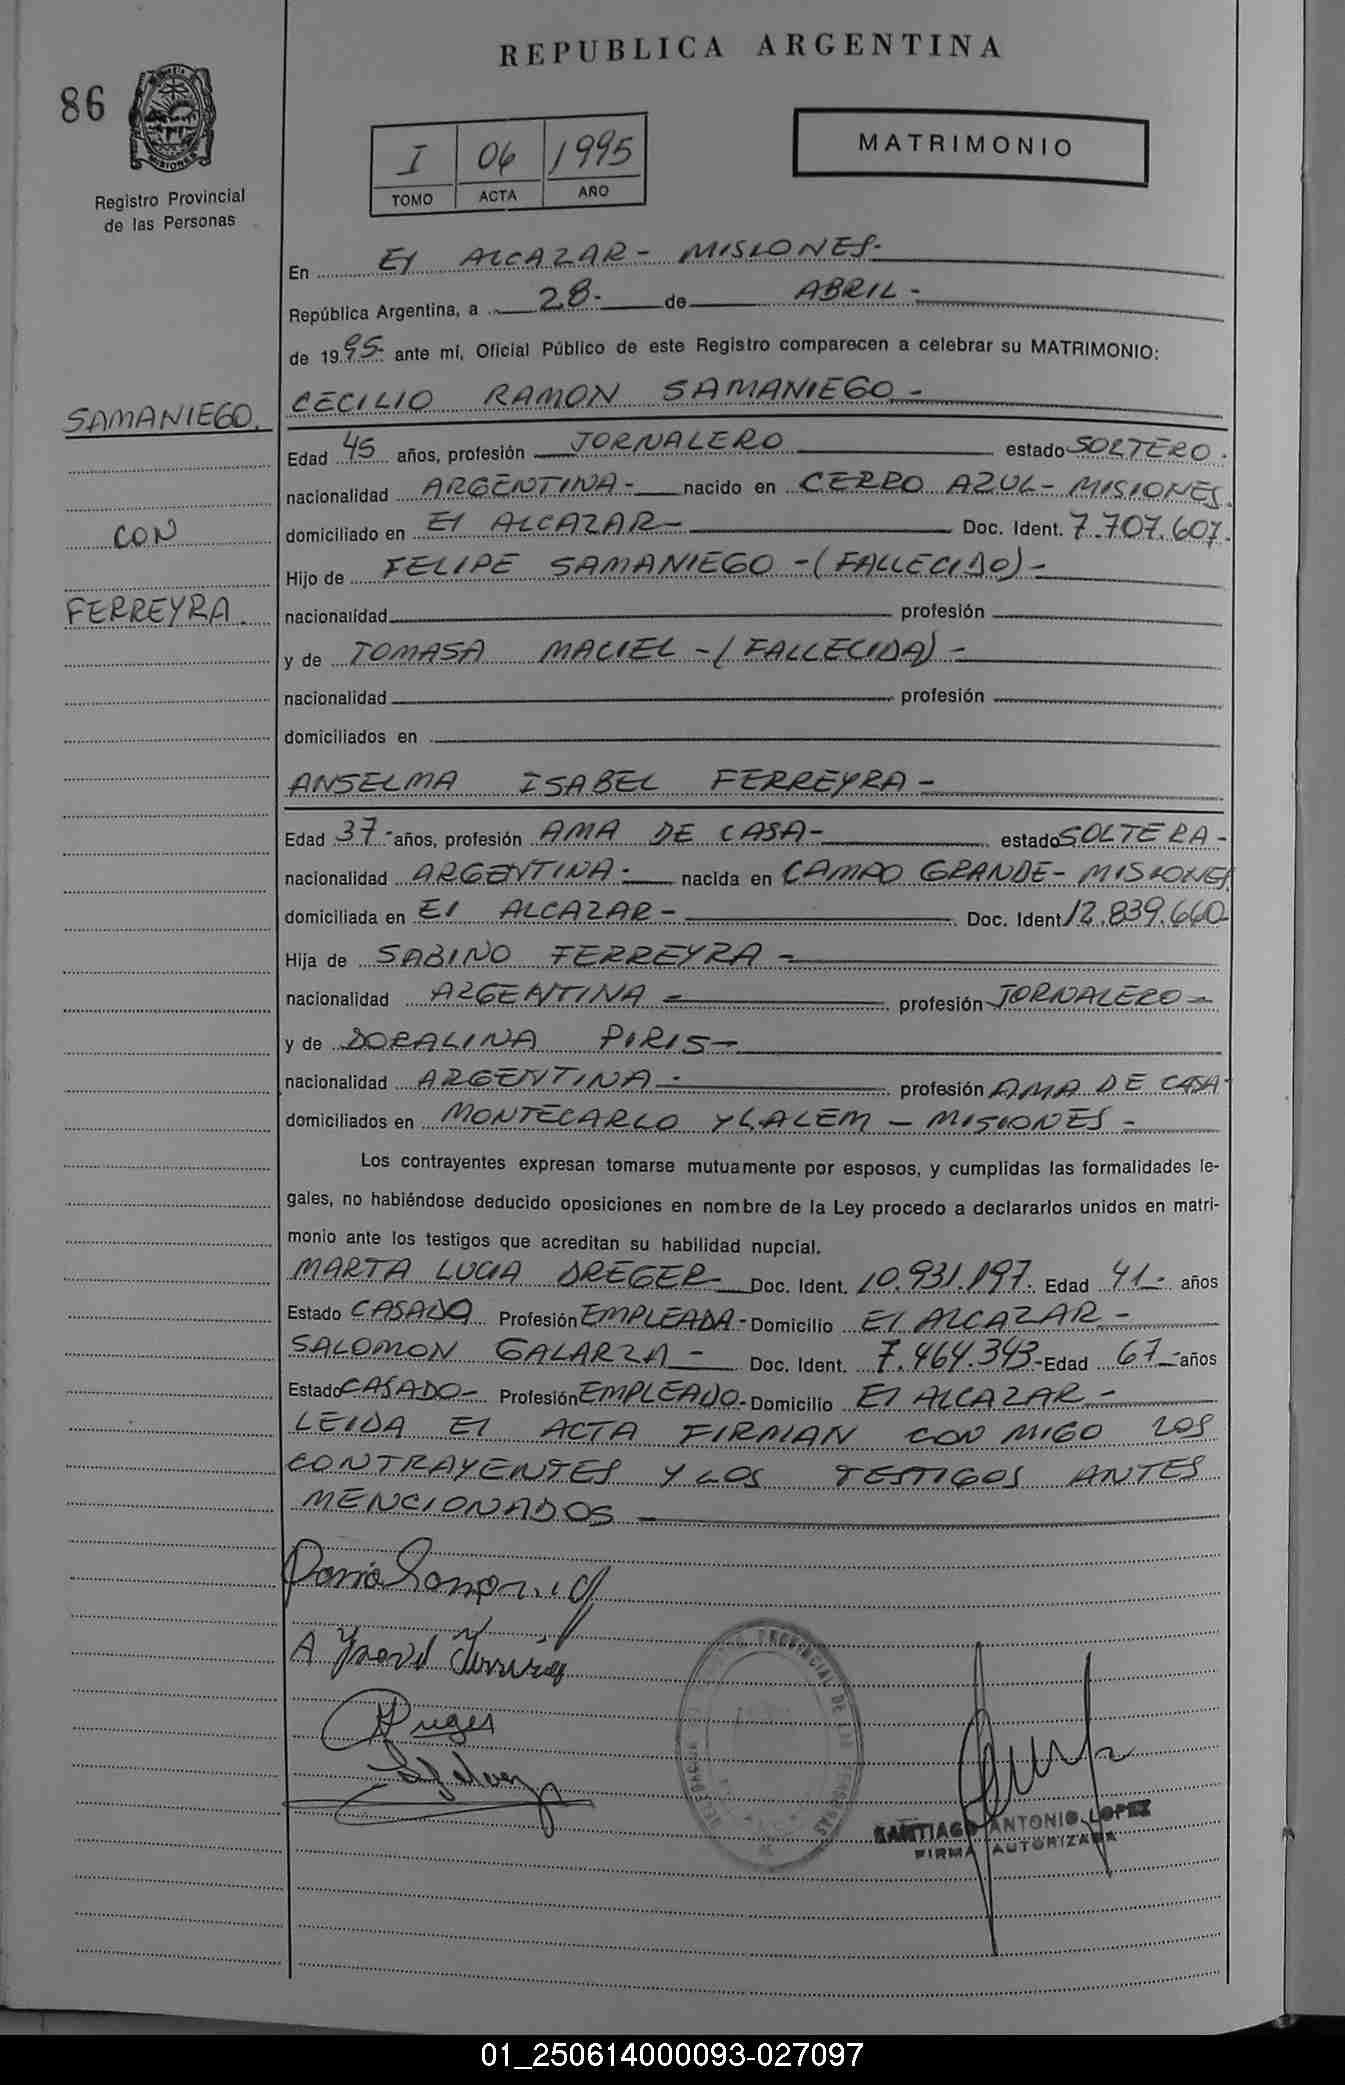 REPUBLICA ARGENTINA
86
MISIONES
Registro Provincial
de las Personas
I 06 1995
TOMO ACTA AÑO
MATRIMONIO
En El ALCAZAR - MISIONES-
República Argentina, a 28- de ABRIL -
de 1995- ante mí, Oficial Público de este Registro comparecen a celebrar su MATRIMONIO:
SAMANIEGO.
CON
FERREYRA.
CECILIO RAMON SAMANIEGO -
Edad 45 años, profesión JORNALERO estado SOLTERO.
nacionalidad ARGENTINA- nacido en CERRO AZUL- MISIONES.
domiciliado en El ALCAZAR- Doc. Ident. 7.707.607.
Hijo de FELIPE SAMANIEGO -(FALLECIDO)-
nacionalidad profesión
y de TOMASA MACIEL -(FALLECIDA)-
nacionalidad profesión
domiciliados en
ANSELMA ISABEL FERREYRA-
Edad 37- años, profesión AMA DE CASA- estado SOLTERA-
nacionalidad ARGENTINA- nacida en CAMPO GRANDE- MISIONES
domiciliada en El ALCAZAR- Doc. Ident 12.839.660-
Hija de SABINO FERREYRA -
nacionalidad ARGENTINA - profesión JORNALERO-
y de DORALINA PIRIS-
nacionalidad ARGENTINA- profesión AMA DE CASA-
domiciliados en MONTECARLO Y L.ALEM - MISIONES -
Los contrayentes expresan tomarse mutuamente por esposos, y cumplidas las formalidades le-
gales, no habiéndose deducido oposiciones en nombre de la Ley procedo a declararlos unidos en matri-
monio ante los testigos que acreditan su habilidad nupcial.
MARTA LUCIA DREGER- Doc. Ident. 10.931.197. Edad 41- años
Estado CASADO Profesión EMPLEADA- Domicilio El ALCAZAR-
SALOMON GALARZA- Doc. Ident. 7.464.343- Edad 67- años
Estado CASADO- Profesión EMPLEADO- Domicilio El ALCAZAR-
LEIDA El ACTA FIRMAN CON MIGO LOS
CONTRAYENTES Y LOS TESTIGOS ANTES
MENCIONADOS
A
PROVINCIAL DE LAS PERSONAS
SANTIAGO ANTONIO LOPEZ
FIRMA AUTORIZADA
01_250614000093-027097